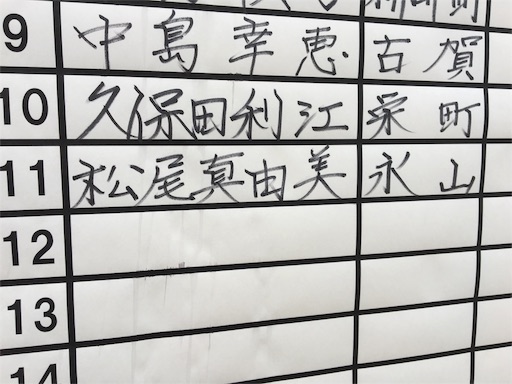 9 中島幸恵 古賀
10 久保田利江 栄町
11 松尾真由美 永山
12
13
14